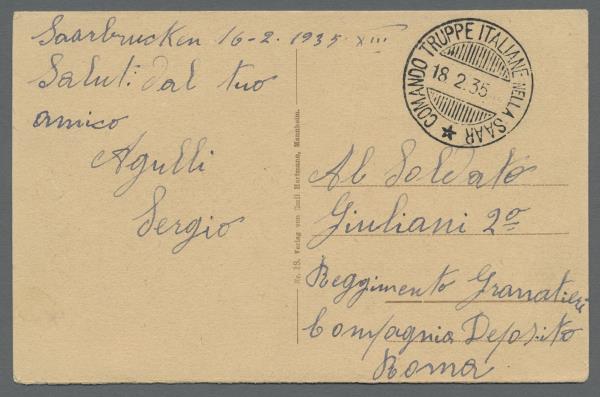 Saarbrucken 16-2. 1935 XIII
Saluti dal tuo
amico
Agulli
Sergio
COMANDO TRUPPE ITALIANE NELLA SAAR
18.2.35
Nr. 18. Verlag von Emil Hartmann, Mannheim.
Al Soldato
Giuliani 2º
Reggimento Granatieri
Compagnia Deposito
Roma